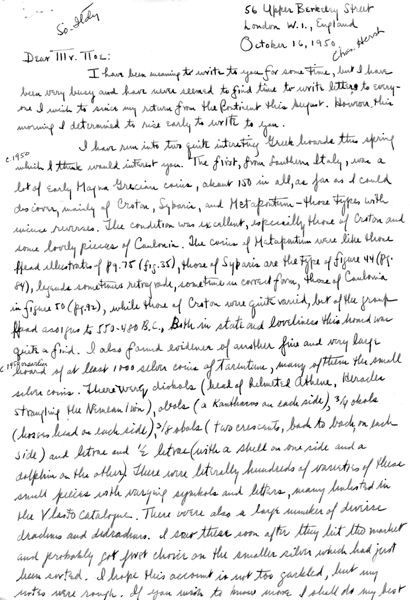 So. Italy
56 Upper Berkeley Street
London W. 1., England
October 16, 1950
Chas. Hersh
Dear Mr. Noe:
I have been meaning to write to you for some time, but I have
been very busy and have never seemed to find time to write letters to every-
one I wish to since my return from the Continent this August. However, this
morning I determined to rise early to write to you.
c. 1950
I have run into two quite interesting Greek hoards this spring
which I think would interest you. The first, from Southern Italy, was a
lot of early Magna Grecian coins, about 150 in all, as far as I could
discover, mainly of Croton, Sybaris, and Metapontum - those types with
incuse reverses. The condition was excellent, especially those of Croton and
some lovely pieces of Caulonia. The coins of Metapontum were like those
Head illustrates of pg. 75 (fig. 35), those of Syparis are the type of figure 44 (pg.
84), legends sometimes retrograde, sometime in correct form, those of Caulonia
in figure 50 (pg. 92), while those of Croton were quite varied, but of the group
Head assigns to 550-480 B.C., Both in state and loveliness this hoard was
quite a find. I also found evidence of another fine and very large
c. 1950 or earlier
hoard of at least 1000 silver coins of Tarentum, many of them the small
silver coins. There were diobols (head of helmeted Athene, Heracles
strangling the Nemean lion), obols (a Kantharos on each side), 3/4 obols
(horses head on each side), obols (two crescents, back to back, on each
side) and litrae and ½ litrae (with a shell on one side and a
dolphin on the other). There were literally hundreds of varieties of these
small pieces with varying symbols and letters, many unlisted in
the Vlasto Catalogue. There were also a large number of diverse
drachms and didrachms. I saw these soon after they hit the market
and probably got first choice on the smaller silver which had just
been sorted. I hope this account is not too garbled, but my
notes were rough. If you wish to know more I shall do my best